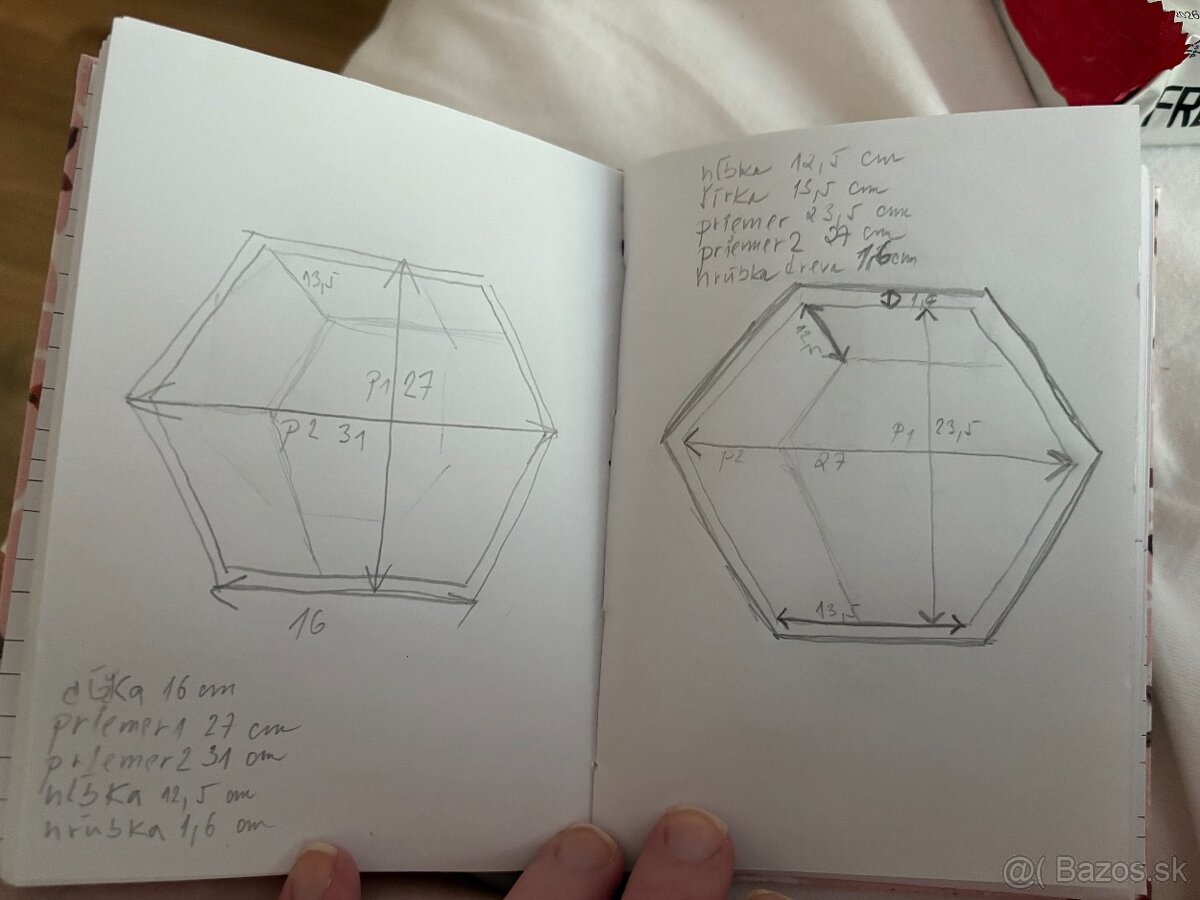 13,5
P1 27
P2 31
16
dĺžka 16 cm
priemer1 27 cm
priemer2 31 cm
hĺbka 12,5 cm
hrúbka 1,6 cm
hĺbka 12,5 cm
šírka 13,5 cm
priemer 23,5 cm
priemer2 27 cm
hrúbka dreva 1,6cm
1,6
12,5
P1 23,5
P2 27
13,5
2026
FRE
@( Bazos.sk